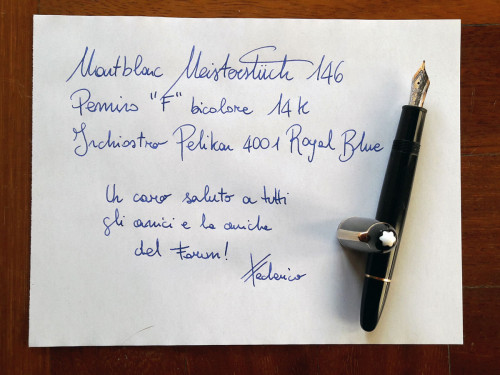 Montblanc Meisterstück 146
Pennino "F" bicolore 14K
Inchiostro Pelikan 4001 Royal Blue
Un caro saluto a tutti
gli amici e le amiche
del Forum!
Federico